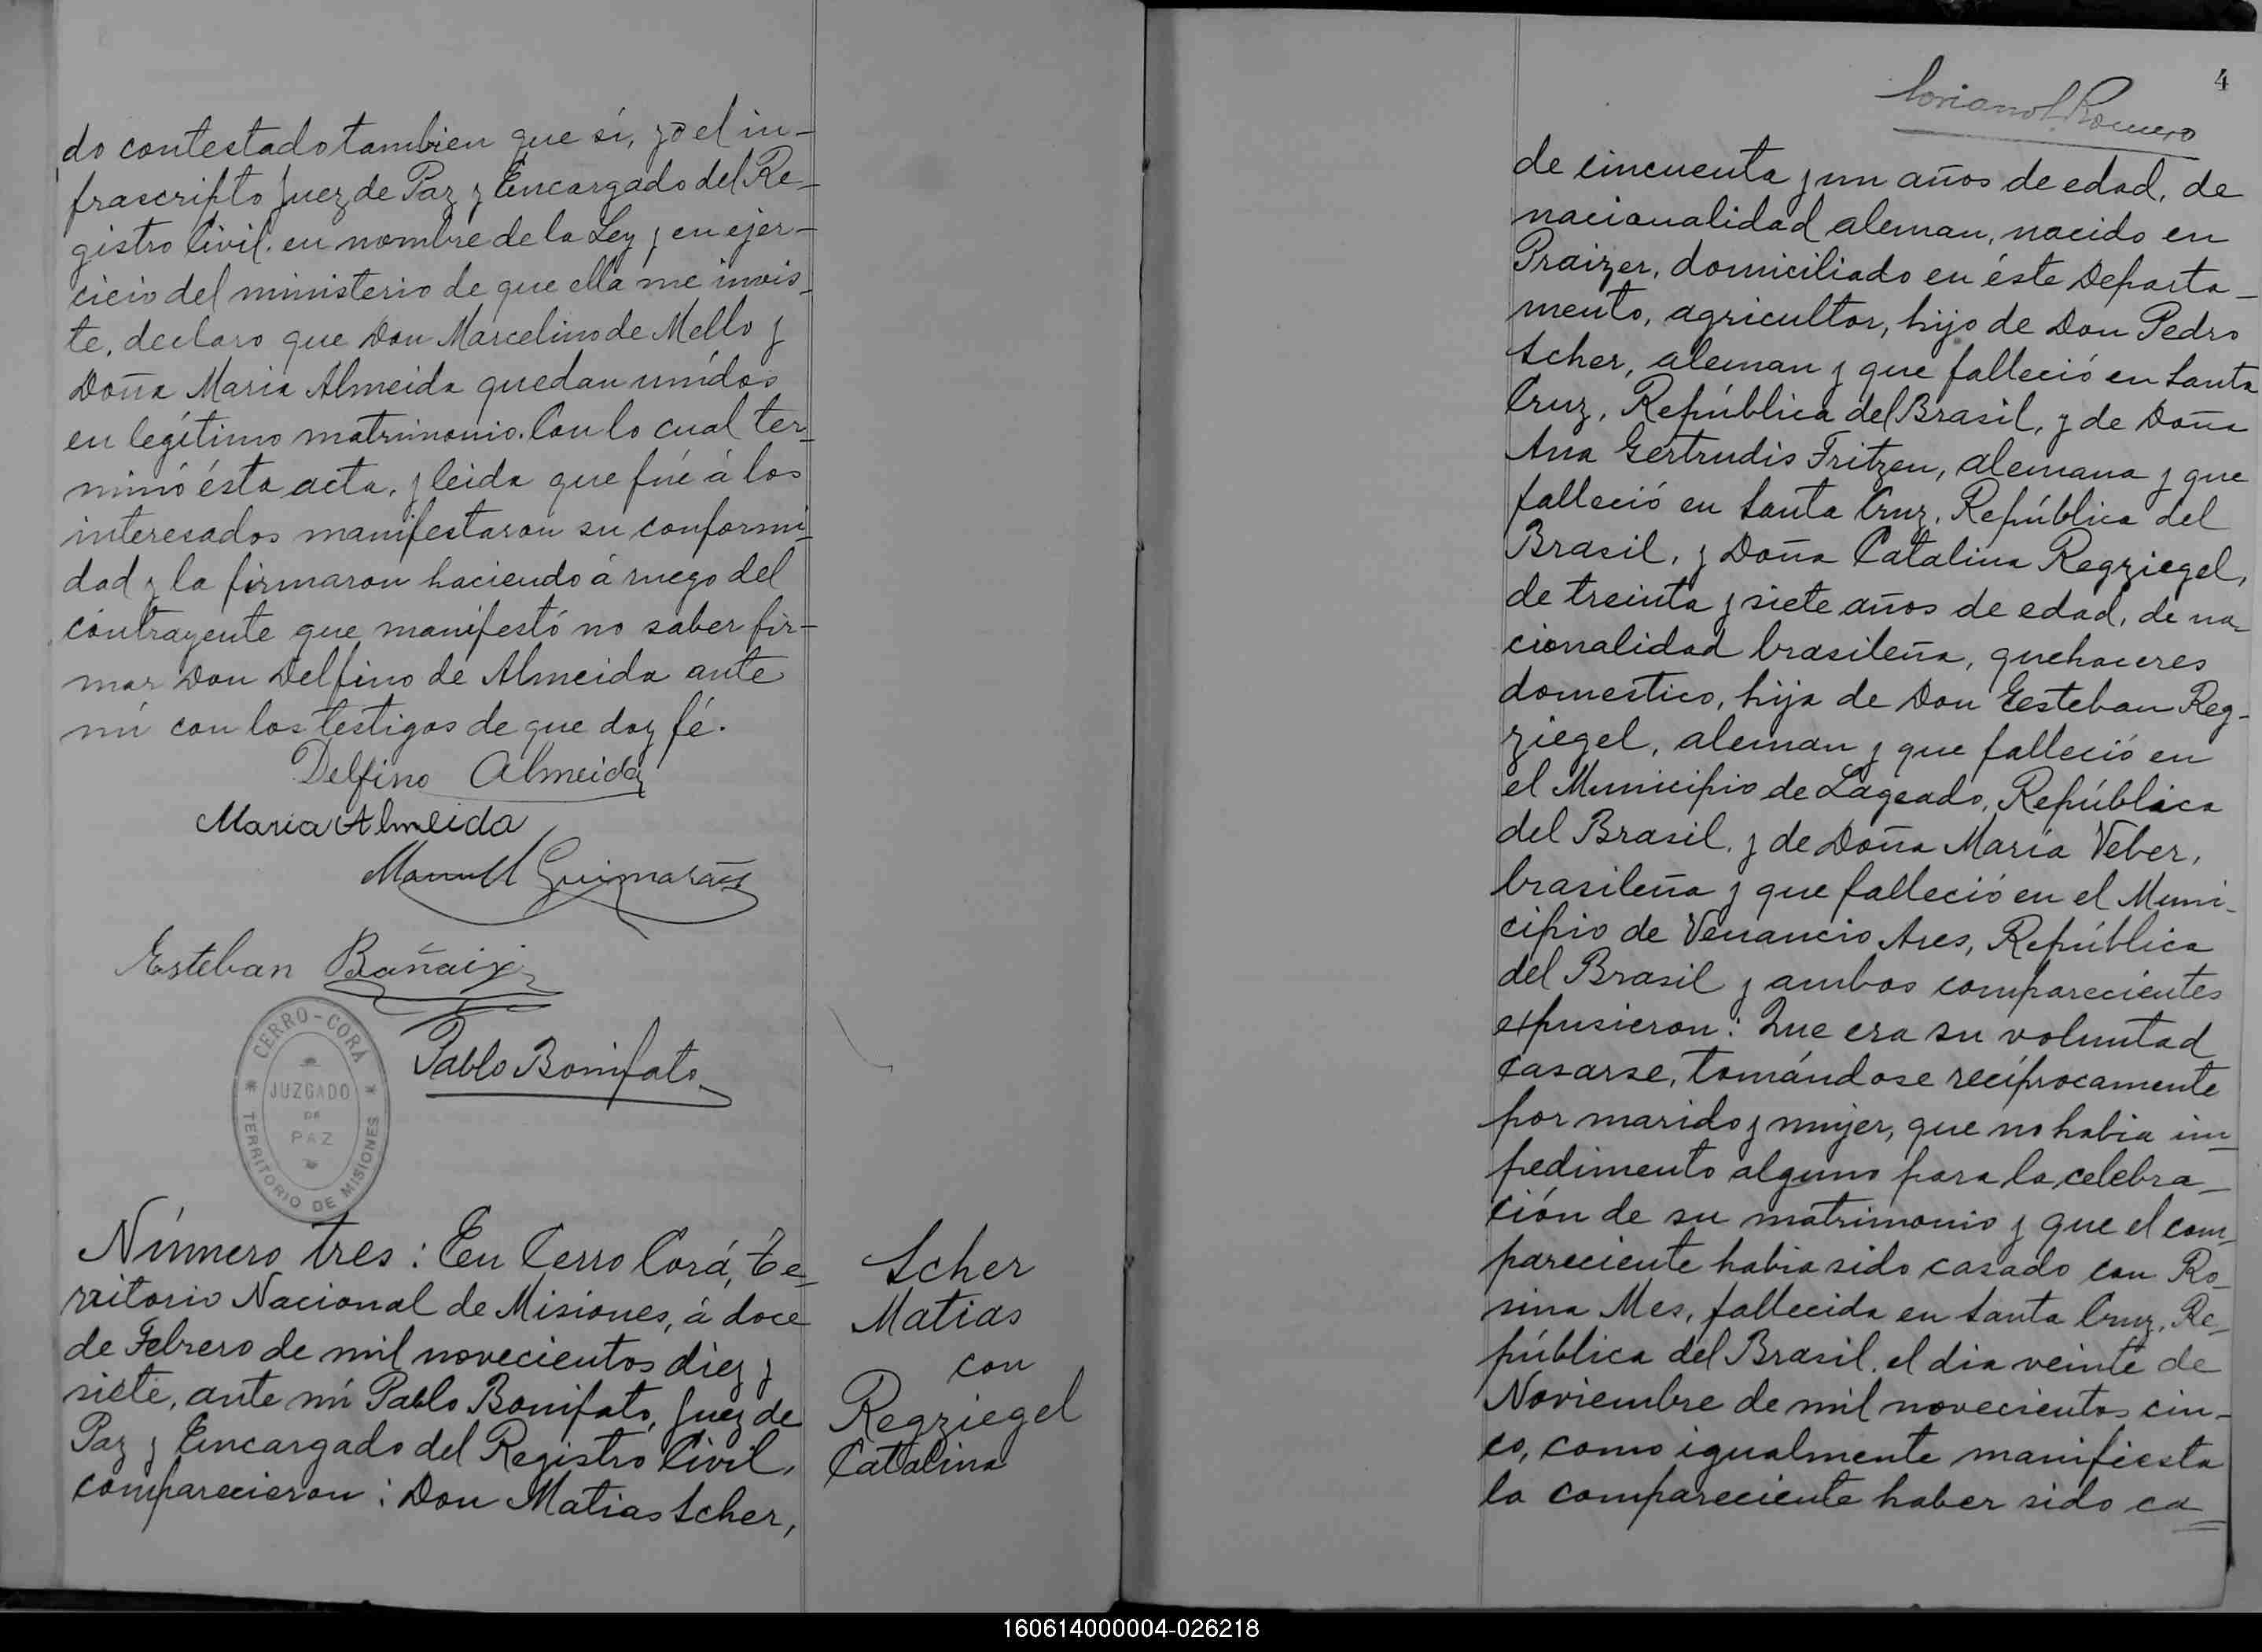 do contestado tambien que sí, yo el in-
frascripto Juez de Paz y Encargado del Re-
gistro Civil, en nombre de la Ley y en ejer-
cicio del ministerio de que ella me invis-
te, declaro que Don Marcelino de Mello y
Doña Maria Almeida quedan unídos
en legítimo matrimonio. Con lo cual ter-
minó ésta acta, y leida que fué á los
interesados manifestaron su conformi-
dad y la firmaron haciendo á ruego del
contrayente que manifestó no saber fir-
mar Don Delfino de Almeida ante
mí con los testigos de que doy fé.
Delfino Almeida
Maria Almeida
Manuel Guimarães
Esteban
Pablo Bonifato
CERRO-CORÁ
JUZGADO
DE
PAZ
TERRITORIO DE MISIONES
Número tres: En Cerro Corá, Te-
rritorio Nacional de Misiones, á doce
de Febrero de mil novecientos diez y
siete, ante mí Pablo Bonifato, Juez de
Paz y Encargado del Registro Civil,
comparecieron: Don Matias Scher,
Scher
Matias
con
Regziegel
Catalina
4
Romero
de cincuenta y un años de edad, de
nacionalidad aleman, nacido en
Praizer, domiciliado en éste Departa-
mento, agricultor, hijo de Don Pedro
Scher, aleman y que falleció en Santa
Cruz, República del Brasil, y de Doña
Ana Gertrudis Fritzen, alemana y que
falleció en Santa Cruz, República del
Brasil, y Doña Catalina Regziegel,
de treinta y siete años de edad, de na-
cionalidad brasileña, quehaceres
domestico, hija de Don Eesteban Reg-
ziegel, aleman y que falleció en
el Municipio de Lageado, República
del Brasil, y de Doña María Veber,
brasileña y que falleció en el Muni-
cipio de Venancio Ares, República
del Brasil y ambos comparecientes
expusieron: Que era su voluntad
casarse, tomándose recíprocamente
por marido y mujer, que no habia im-
pedimento alguno para la celebra-
ción de su matrimonio y que el com-
pareciente habia sido casado con Ro-
sina Mes, fallecida en Santa Cruz, Re-
pública del Brasil, el dia veinte de
Noviembre de mil novecientos cin-
co, como igualmente manifiesta
la compareciente haber sido ca-
160614000004-026218